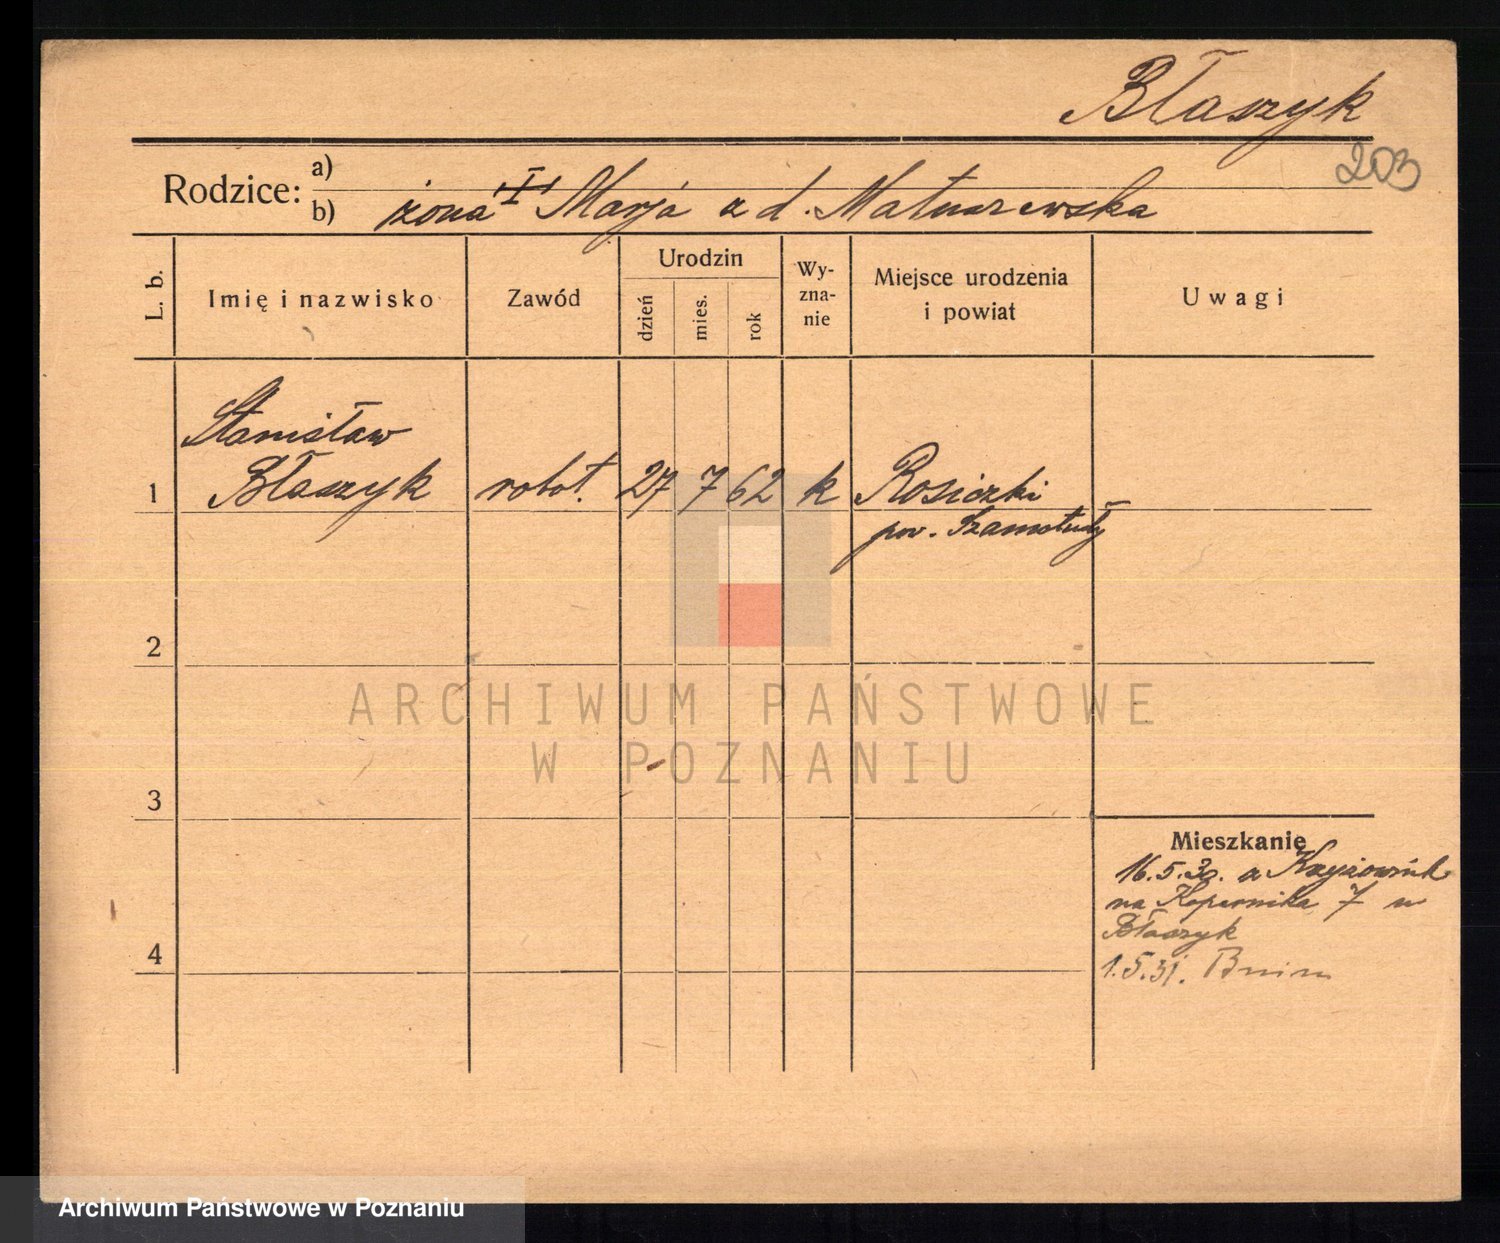 Błaszyk
203
Rodzice: a)
b) żona I Marja z d. Matuszewska
L. b.
Imię i nazwisko
Zawód
Urodzin
dzień
mies.
rok
Wy-
zna-
nie
Miejsce urodzenia
i powiat
Uwagi
Stanisław
1 Błaszyk robot. 27 7 62 k Rosiczki
pow. Szamotuły
2
ARCHIWUM PAŃSTWOWE
W POZNANIU
3
Mieszkanie
16.5.30. z
na Kopernika 7 u
Błaszyk
4
1.5.31. Bnin
Archiwum Państwowe w Poznaniu